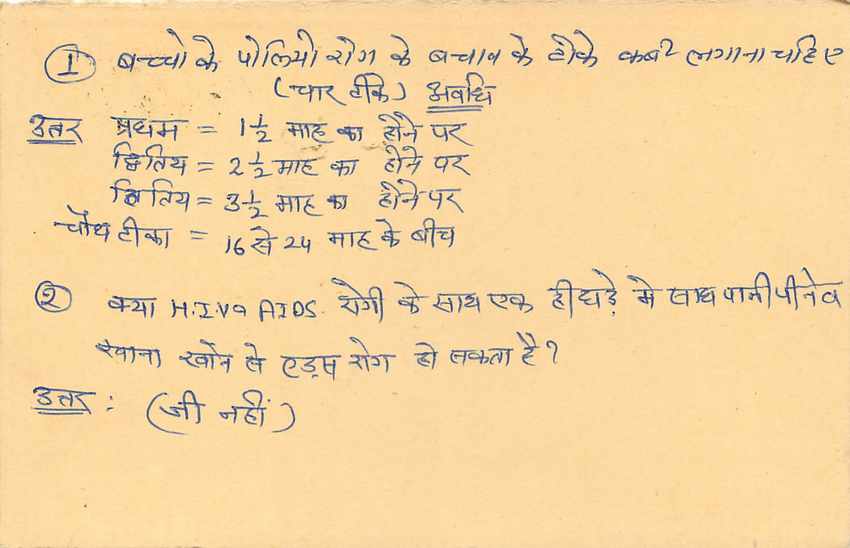 ① बच्चो के पोलियो रोग के बचाव के टीके कब२ लगाना चहिए
(चार टीके) अवधि
उत्तर प्रथम = 1½ माह का होने पर
द्वितिय = 2½ माह का होने पर
त्रितिय = 3½ माह का होने पर
चौथ टीका = 16 से 24 माह के बीच
② क्या H.I.V व AIDS. रोगी के साथ एक ही घड़े मे साथ पानी पीने व
खाना खाने से एड्स रोग हो सकता है?
उत्तर : (जी नहीं)